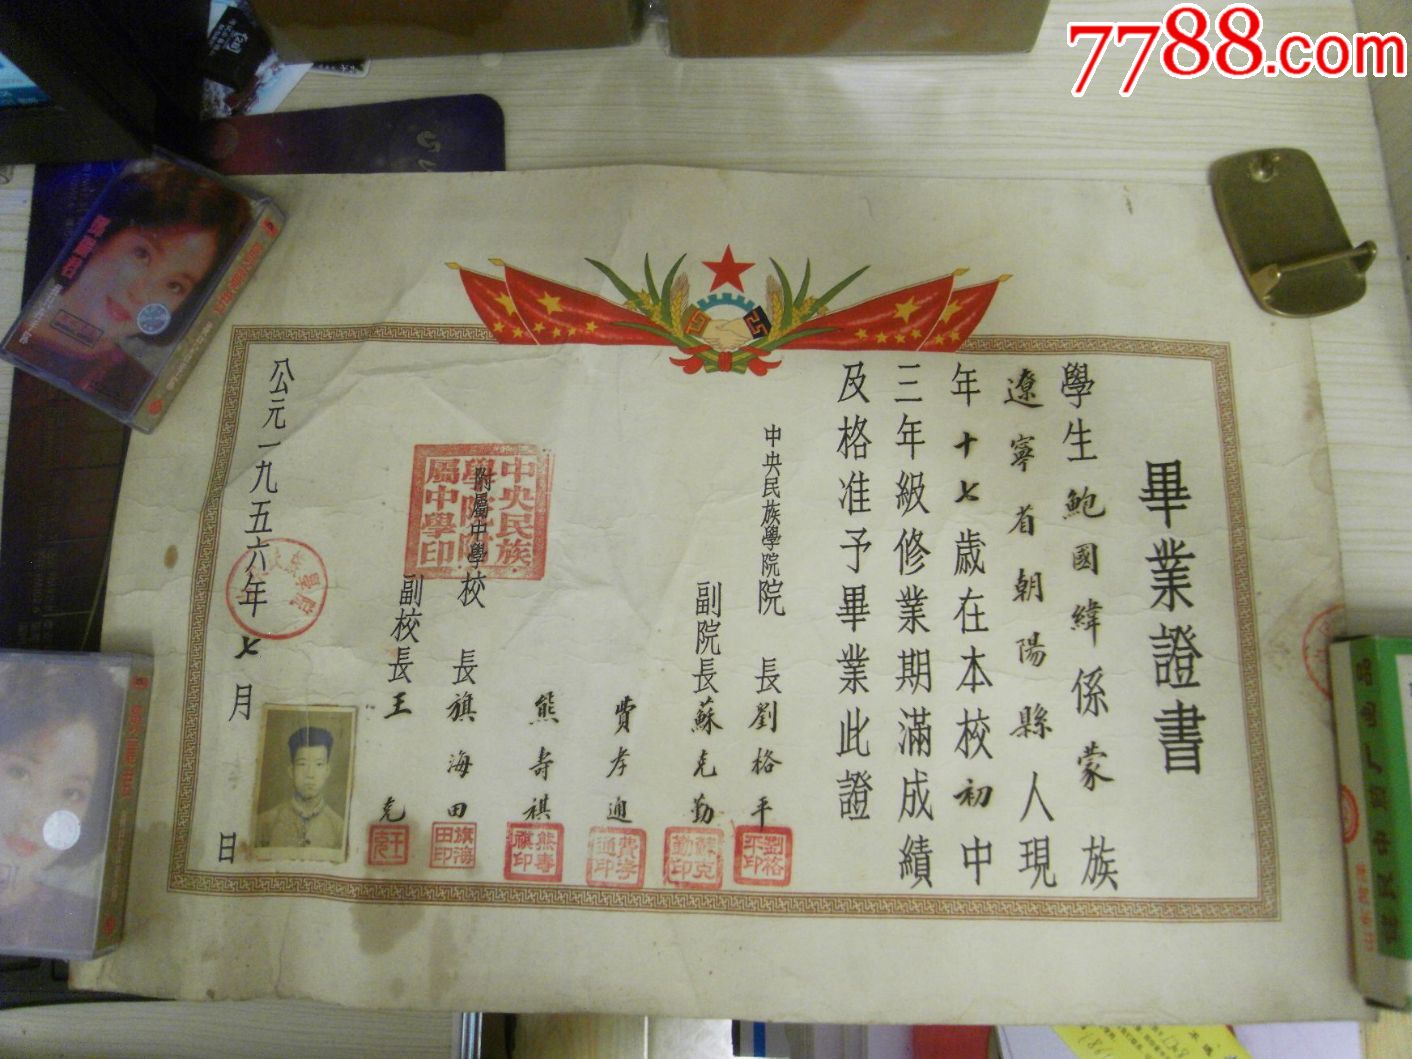 7788.com
畢業證書
學生鮑國緯係蒙族
遼寧省朝陽縣人現
年十七歲在本校初中
三年級修業期滿成績
及格准予畢業此證
中央民族學院院長劉格平
副院長蘇克勤
費孝通
熊壽祺
附屬中學校長旗海田
副校長王克
公元一九五六年七月 日
中央民族
學院附
屬中學印
劉格
平印
蘇克
勤印
費孝
通印
熊壽
祺印
旗海
田印
王克